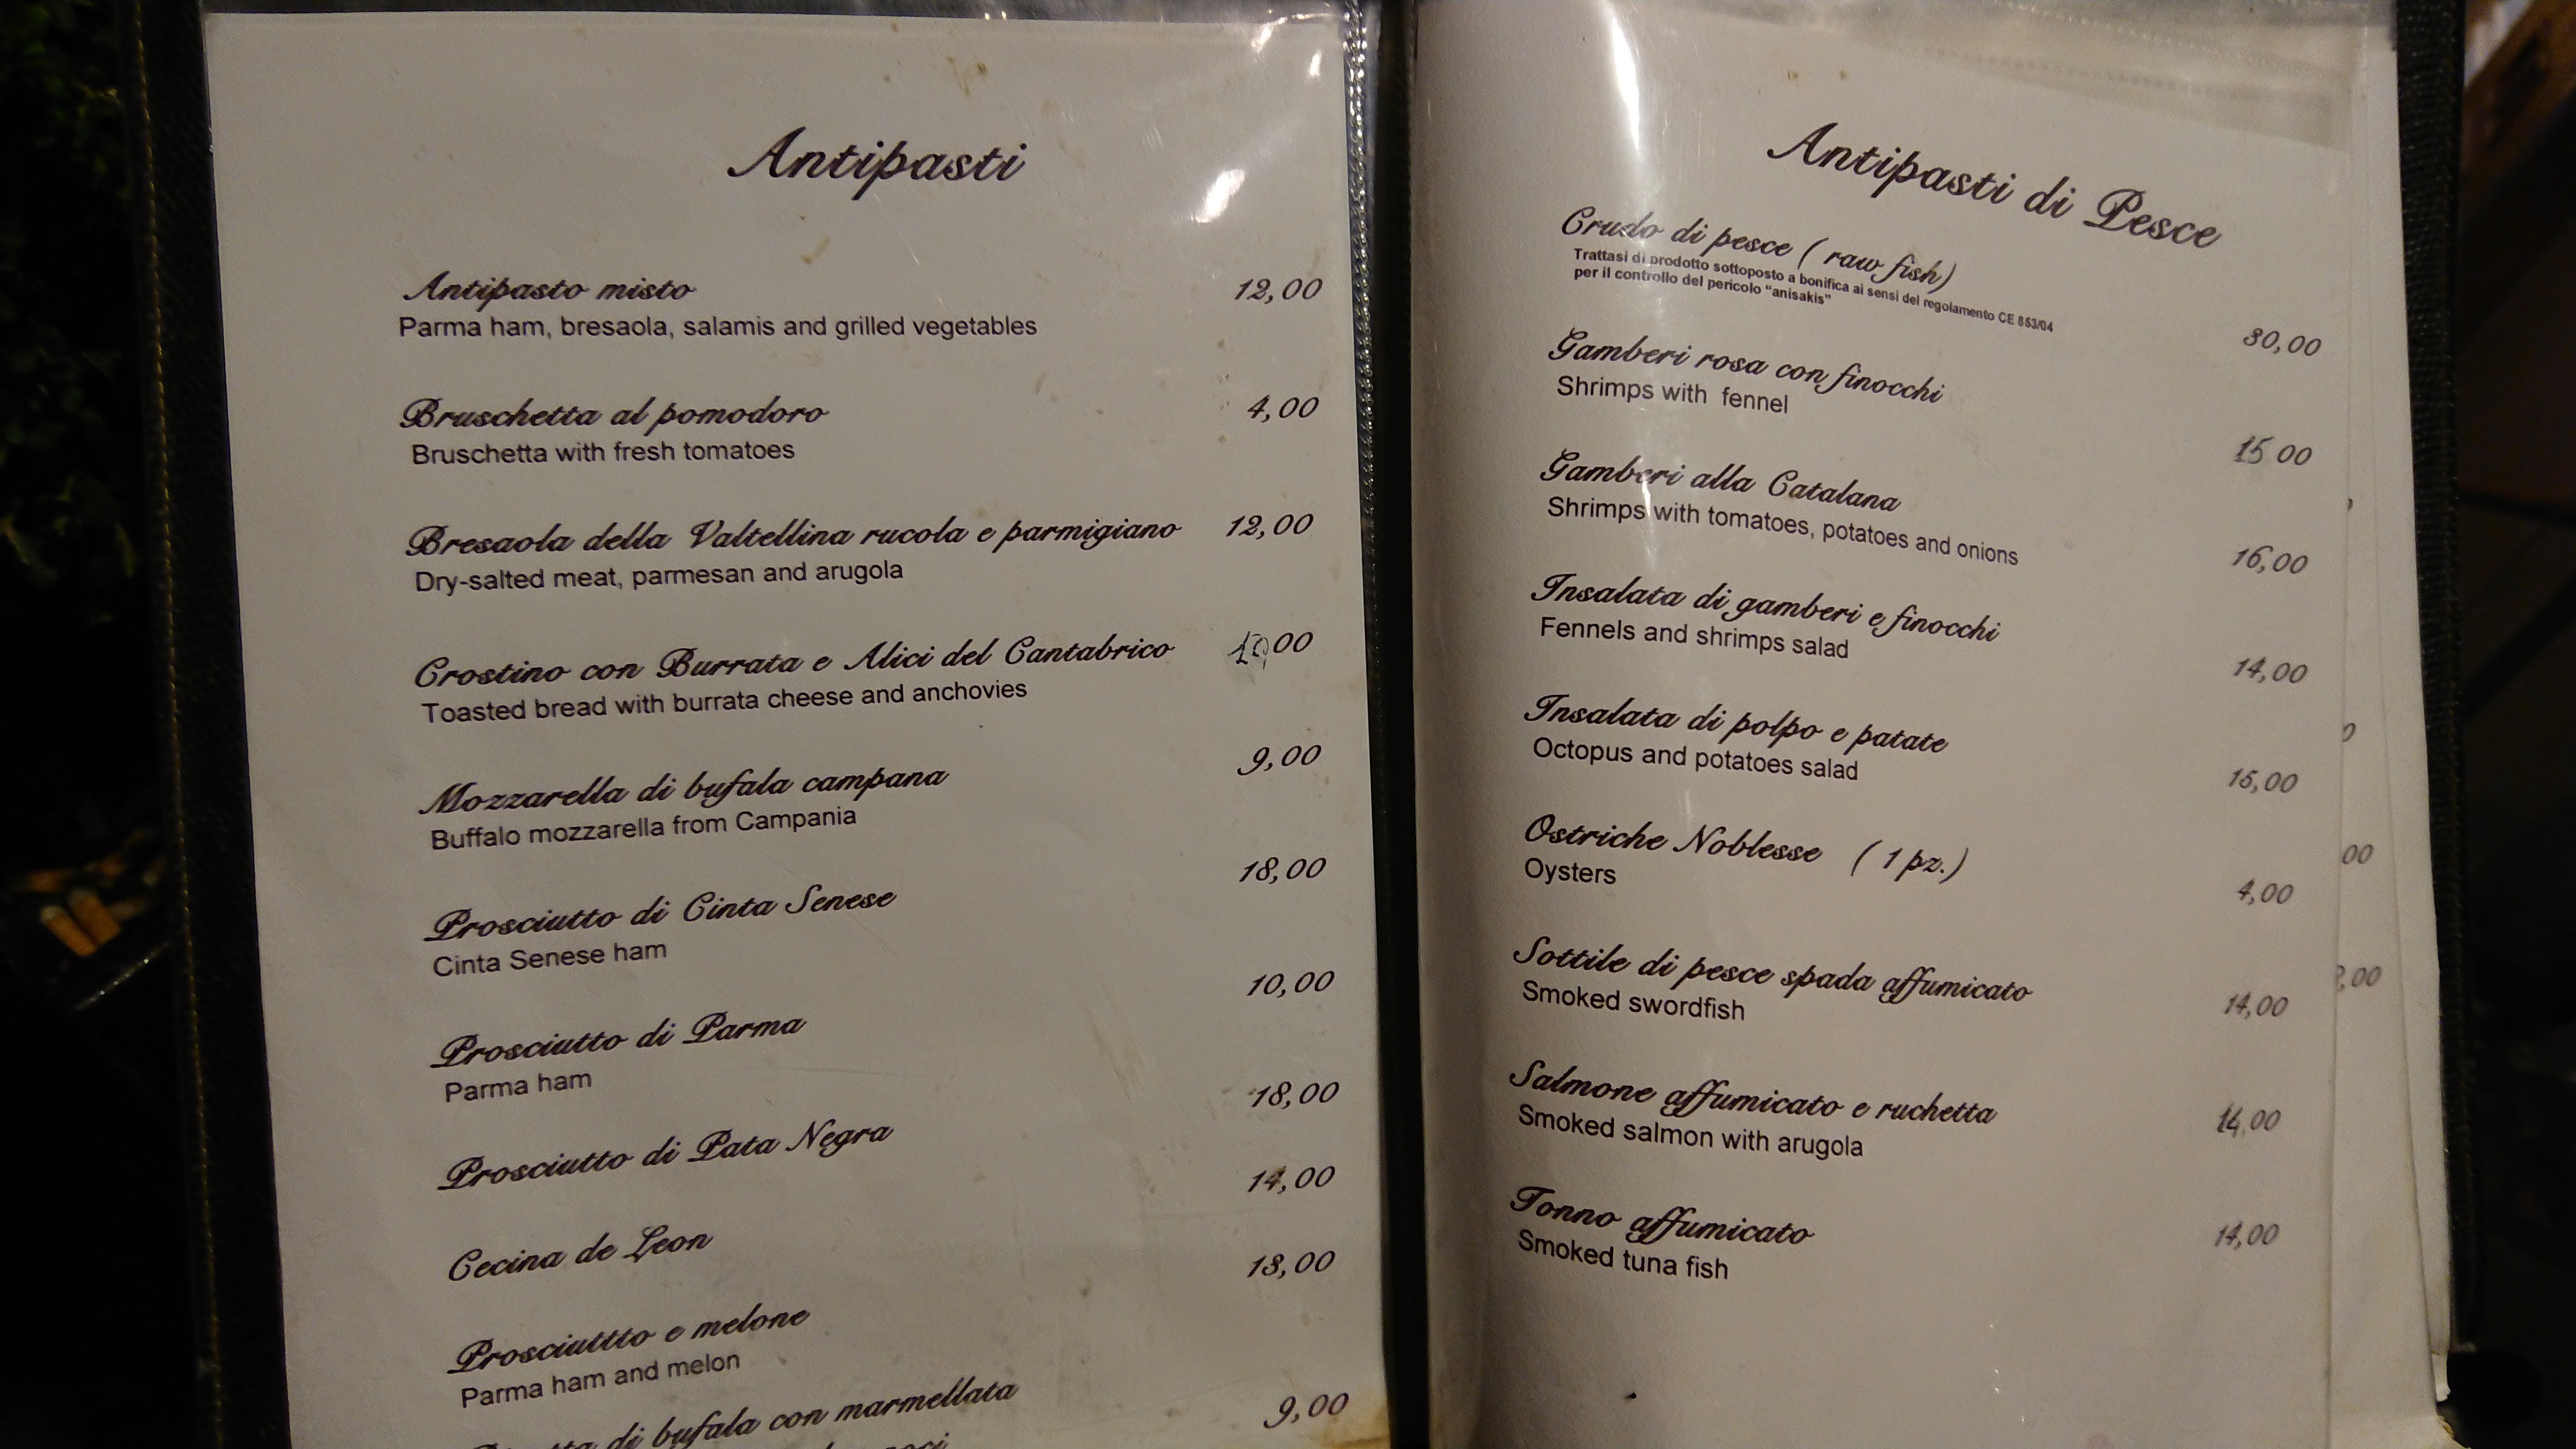 Antipasti
Antipasto misto 12,00
Parma ham, bresaola, salamis and grilled vegetables
Bruschetta al pomodoro 4,00
Bruschetta with fresh tomatoes
Bresaola della Valtellina rucola e parmigiano 12,00
Dry-salted meat, parmesan and arugola
Crostino con Burrata e Alici del Cantabrico 00
Toasted bread with burrata cheese and anchovies
Mozzarella di bufala campana 9,00
Buffalo mozzarella from Campania
Prosciutto di Cinta Senese 18,00
Cinta Senese ham
Prosciutto di Parma 10,00
Parma ham
Prosciutto di Pata Negra 18,00
Cecina de Leon 14,00
Prosciuttto e melone 13,00
Parma ham and melon
di bufala con marmellata 9,00
Antipasti di Pesce
Crudo di pesce ( raw fish)
Trattasi di prodotto sottoposto a bonifica ai sensi del regolamento CE 853/04
per il controllo del pericolo "anisakis"
30,00
Gamberi rosa con finocchi
Shrimps with fennel
15 00
Gamberi alla Catalana
Shrimps with tomatoes, potatoes and onions
16,00
Insalata di gamberi e finocchi
Fennels and shrimps salad
14,00
Insalata di polpo e patate
Octopus and potatoes salad
15,00
Ostriche Noblesse ( 1 pz.)
Oysters
4,00
Sottile di pesce spada affumicato
Smoked swordfish
14,00
Salmone affumicato e ruchetta
Smoked salmon with arugola
14,00
Tonno affumicato
Smoked tuna fish
14,00
00
,00